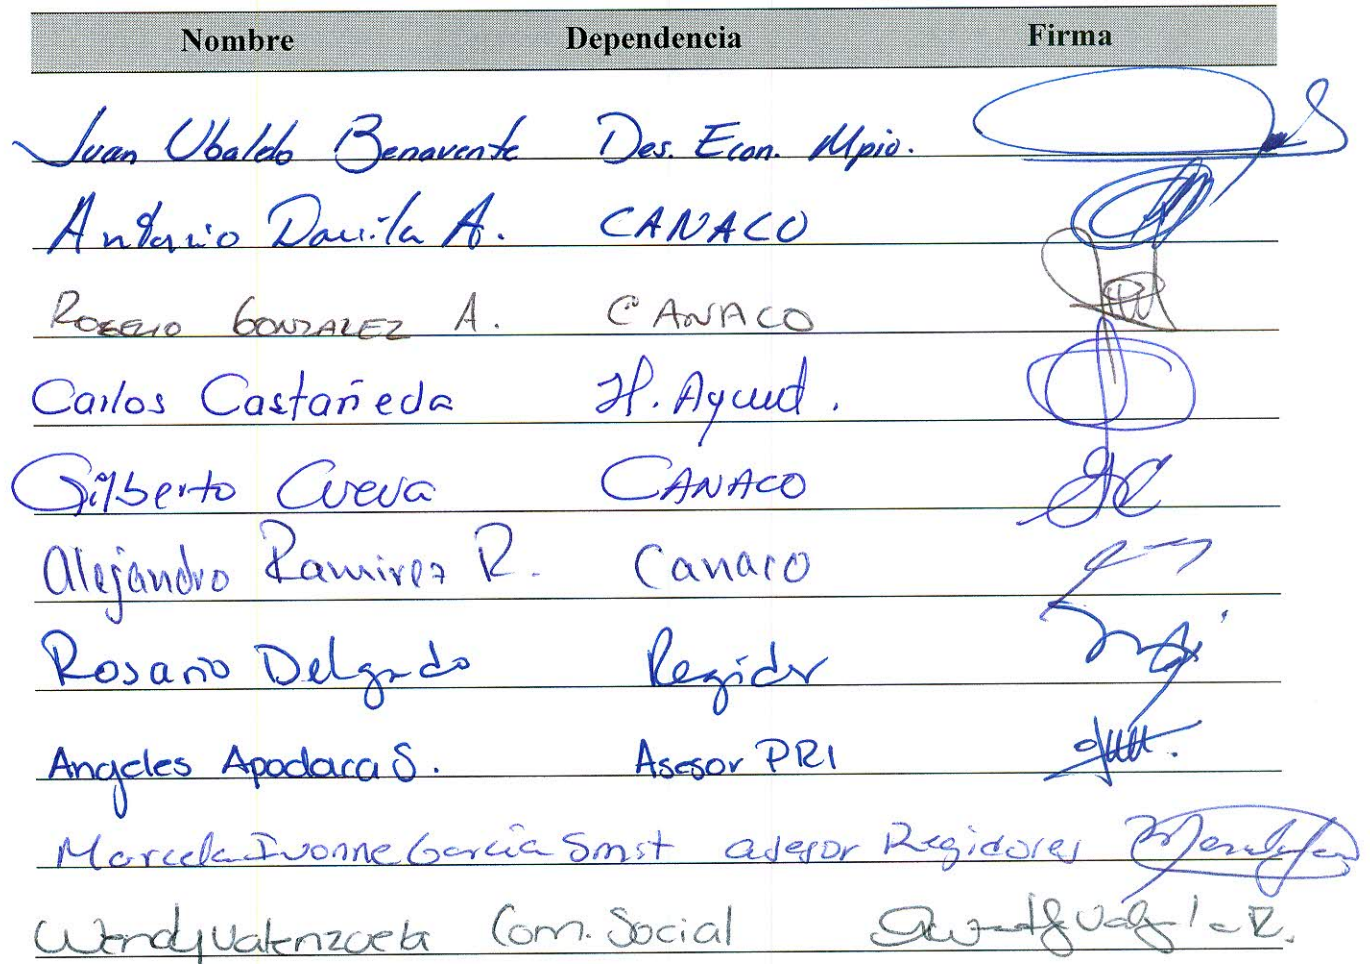 Nombre Dependencia Firma
Juan Ubaldo Benavente Des. Econ. Mpio.
Antonio Davila A. CANACO
ROGELIO GONZALEZ A. CANACO
Carlos Castañeda H. Ayunt.
Gilberto Cueva CANACO
Alejandro Ramirez R. Canaco
Rosario Delgado Regidor
Angeles Apodaca S. Asesor PRI
Marcela Ivonne Garcia Smst asesor Regidores
Wendy Valenzuela Com. Social